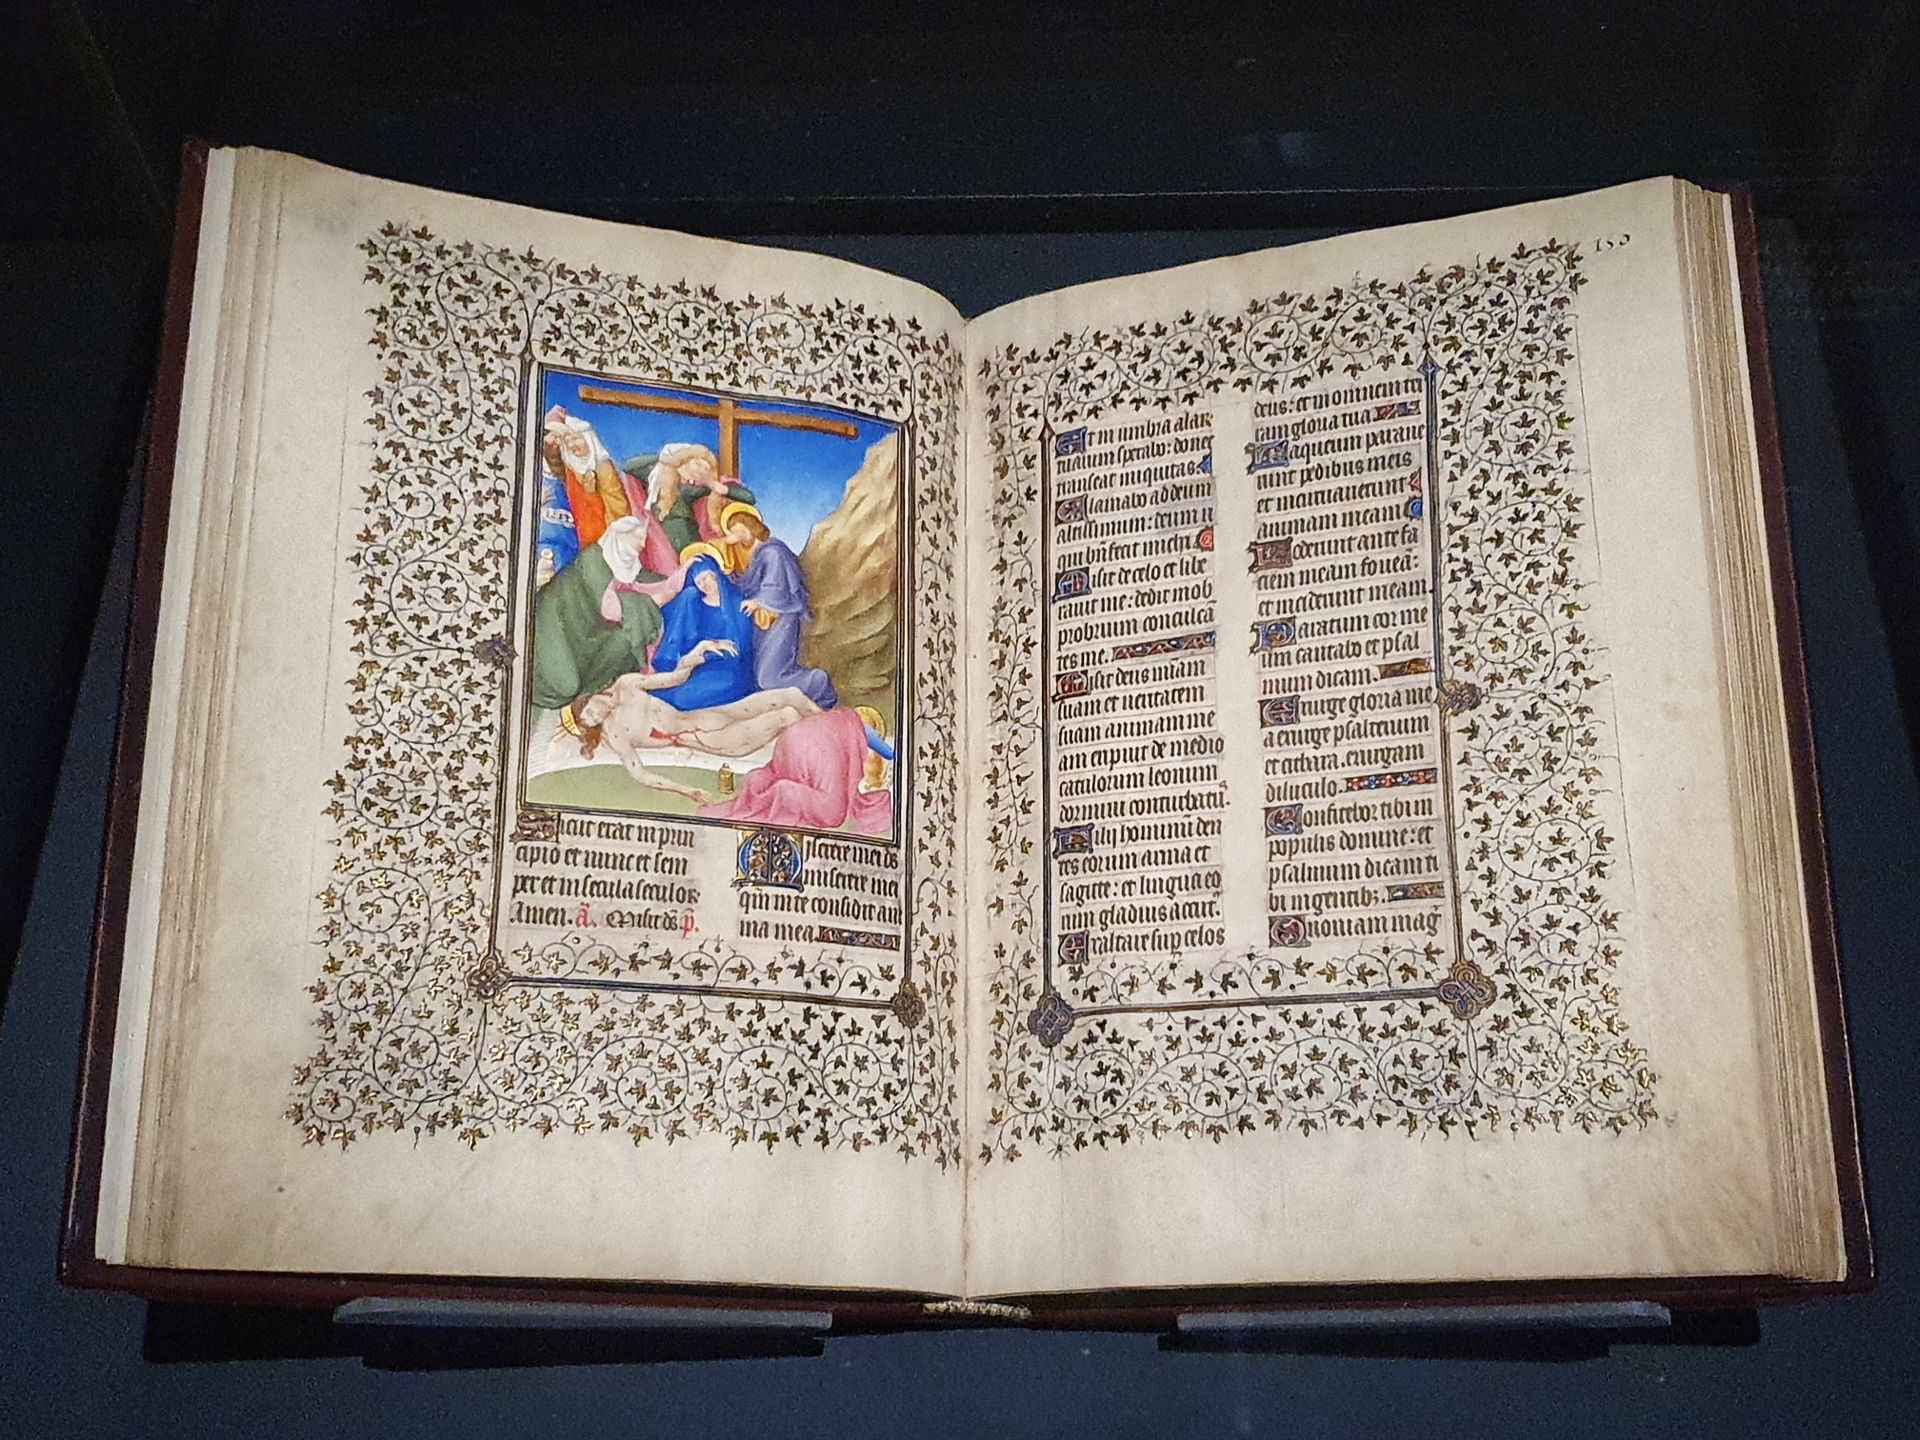 Sicut erat in prin
cipio et nunc et sem
per et in secula seculoꝝ
Amen. a. Misit ds̄. p̄.
Miserere mei ds̄
miserere mei
qm̄ in te confidit ani
ma mea.
150
Et in umbra alaꝝ
tuarum sperabo: donec
transeat iniquitas.
Clamabo ad deum
altissimum: deum
qui bn̄ fecit michi.
Misit de celo et libe
rauit me: dedit in ob
probrium conculcā
tes me.
Misit deus miām
suam et ueritatem
suam animam me
am eripuit de medio
catulorum leonum
dormiui conturbatꝰ.
Filij hominū den
tes eorum arma et
sagitte: et lingua eo
rum gladius acut᷒.
Exaltare suꝑ celos
deus: et in omnem ter
ram gloria tua.
Laqueum paraue
runt pedibus meis
et incuruauerunt
animam meam
Foderunt ante fa
ciem meam foueā:
et inciderunt in eam
Paratum cor me
um cantabo et psal
mum dicam.
Exurge gloria me
a exurge psalterium
et cithara. exurgam
diluculo.
Confitebor tibi in
populis domine: et
psalmum dicam ti
bi in gentibꝫ.
Quoniam mag̅